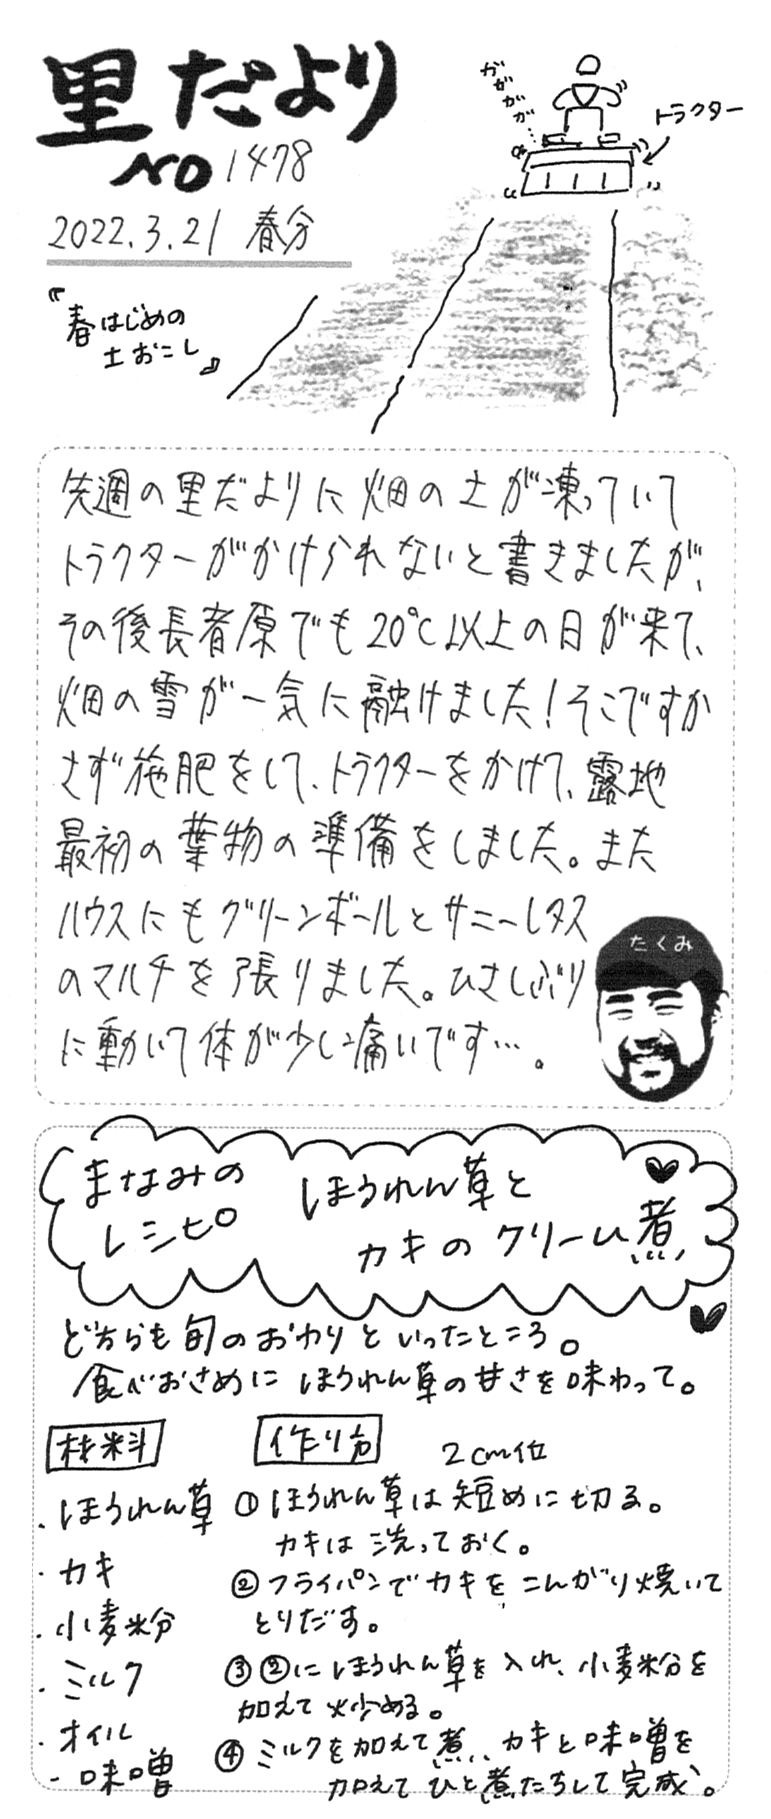 里だより
NO 1478
2022.3.21 春分
『春はじめの
土おこし』
ガガガガ…
トラクター
先週の里だよりに畑の土が凍っていて
トラクターがかけられないと書きましたが、
その後長者原でも20℃以上の日が来て、
畑の雪が一気に融けました!そこですか
さず施肥をして、トラクターをかけて、露地
最初の葉物の準備をしました。また
ハウスにもグリーンボールとサニーレタス
のマルチを張りました。ひさしぶり
に動いて体が少し痛いです…。
たくみ
まなみの
レシピ
ほうれん草と
カキのクリーム煮
どちらも旬のおわりといったところ。
食べおさめにほうれん草の甘さを味わって。
材料
・ほうれん草
・カキ
・小麦粉
・ミルク
・オイル
・味噌
作り方
2cm位
①ほうれん草は短めに切る。
カキは洗っておく。
②フライパンでカキをこんがり焼いて
とりだす。
③②にほうれん草を入れ、小麦粉を
加えて炒める。
④ミルクを加えて煮、カキと味噌を
加えてひと煮たちして完成。